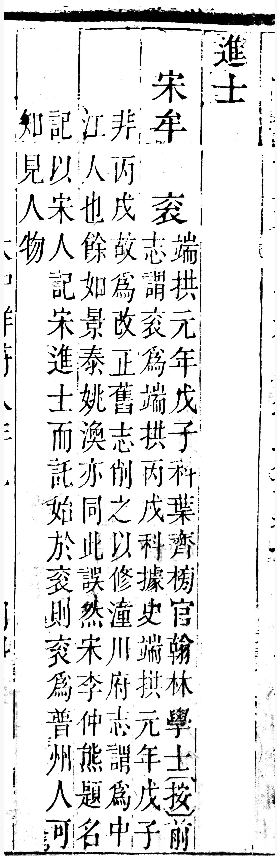 進士
宋牟 袞
端拱元年戊子科葉齊榜官翰林學士按前
志謂袞爲端拱丙戌科據史端拱元年戊子
非丙戌故爲改正舊志削之以修潼川府志謂爲中
江人也餘如景泰姚渙亦同此誤然宋李仲熊題名
記以宋人記宋進士而託始於袞則袞爲普州人可
知見人物